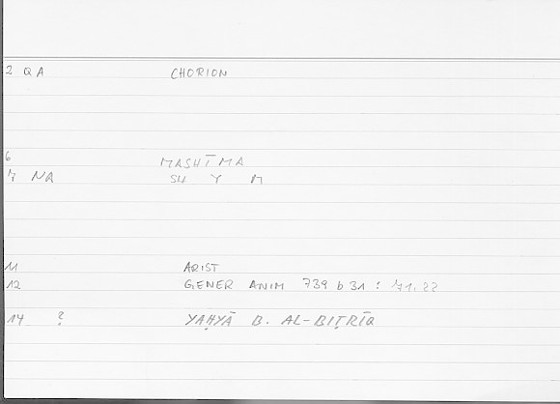 2 QA CHORION
6 MASHĪMA
7 NA SH Y M
11 ARIST
12 GENER ANIM 739 b 31 : 71.22
14 ? YAḤYĀ B. AL-BIṬRĪQ